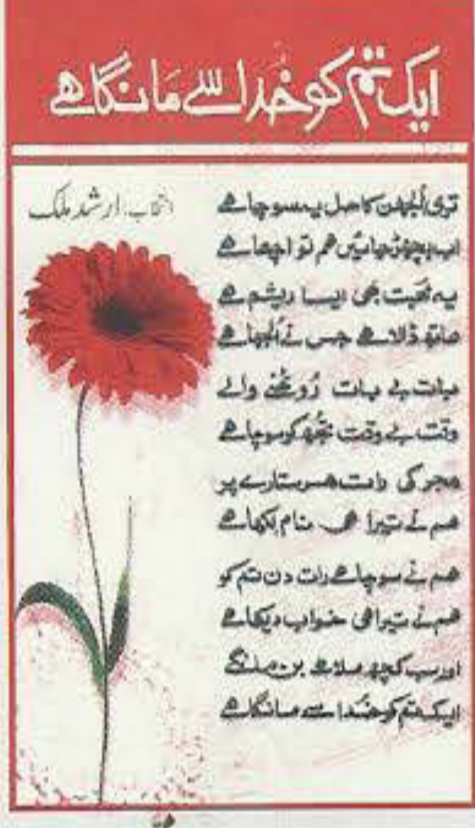 ایک تم کو خدا سے مانگا ہے
انتخاب: ارشد ملک
تری الجھن کا حل یہ سوچا ہے
اب بچھڑ جائیں ہم تو اچھا ہے
یہ محبت بھی ایسا ریشم ہے
ہاتھ ڈالا ہے جس نے اُلجھا ہے
بات بے بات رُوٹھنے والے
وقت بے وقت تجھ کو سوچا ہے
ہجر کی رات ہر ستارے پر
ہم نے تیرا ہی نام لکھا ہے
ہم نے سوچا ہے رات دن تم کو
ہم نے تیرا ہی خواب دیکھا ہے
اور سب کچھ ملا ہے بن مانگے
ایک تم کو خُدا سے مانگا ہے